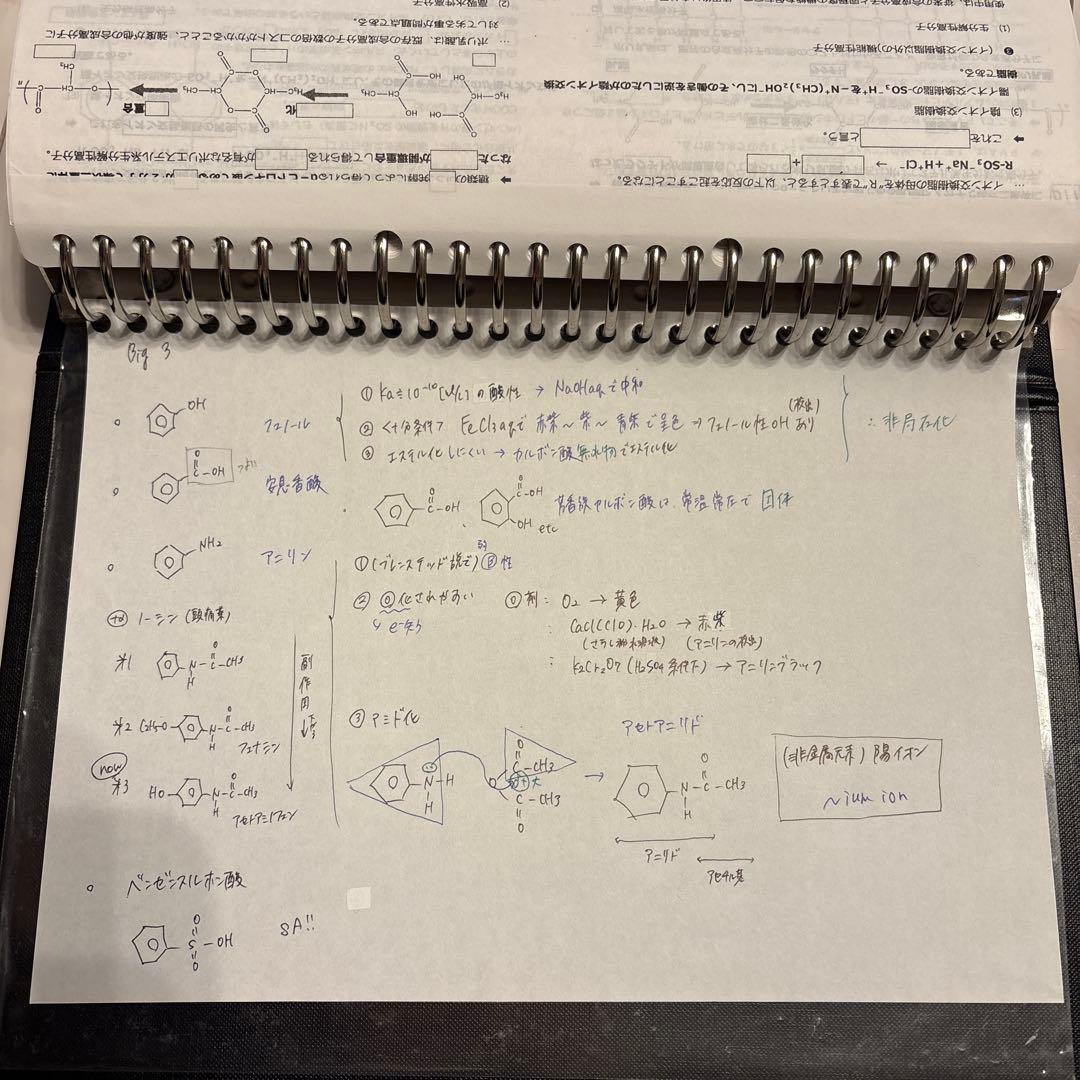 Big 3
OH
フェノール
① Ka≒10⁻¹⁰[mol/L]の酸性 → NaOHaqで中和
② <十分条件> FeCl3aqで 赤紫～紫～青紫で呈色 ⇒ フェノール性OHあり
(検出)
③ エステル化しにくい → カルボン酸無水物でエステル化
∴ 非局在化
O
C-OH
安息香酸
O
C-OH
O
C-OH
OH etc
芳香族カルボン酸は、常温常圧で 固体
NH2
アニリン
① (ブレンステッド説で) 弱Ⓑ性
② Ⓞ化されやすい
↳ e-失う
Ⓞ剤: O2 → 黄色
: CaCl(ClO)·H2O → 赤紫
(さらし粉水溶液) (アニリンの検出)
: K2Cr2O7 (H2SO4条件下) → アニリンブラック
+α
※1
N-C-CH3
H
O
※2 C2H5-O
N-C-CH3
H
O
フェナセチン
now
※3 HO
N-C-CH3
H
O
アセトアミノフェン
副作用
③ アミド化
N-H
H
O
C-CH3
O
C-CH3
O
→
アセトアニリド
O
N-C-CH3
H
アニリド
アセチル基
(非金属元素) 陽イオン
~nium ion
ベンゼンスルホン酸
O
S-OH
O
SA!!
… イオン交換樹脂の母体を"R"で表すとすると、以下の反応を起こすことになる。
R-SO₃⁻Na⁺ + H⁺ + Cl⁻ → + 
➡ これを と言う。
(3) 陰イオン交換樹脂
陽イオン交換樹脂の-SO₃⁻H⁺を -N⁺(CH₃)₃OH⁻にし、その働きを逆にしたのが陰イオン交換
樹脂である。
❷ (イオン交換樹脂以外の)機能性高分子
(1) 生分解性高分子
なった が開環重合して得られる が有名なポリエステル生分解性高分子。
化
重合
H₃C
OH
HO
O
CH₃
n
… ポリ乳酸は、既存の合成高分子の数倍のコストがかかること、強度が他の合成高分子に
対して劣る事が問題点である。
(2) 高吸水性高分子